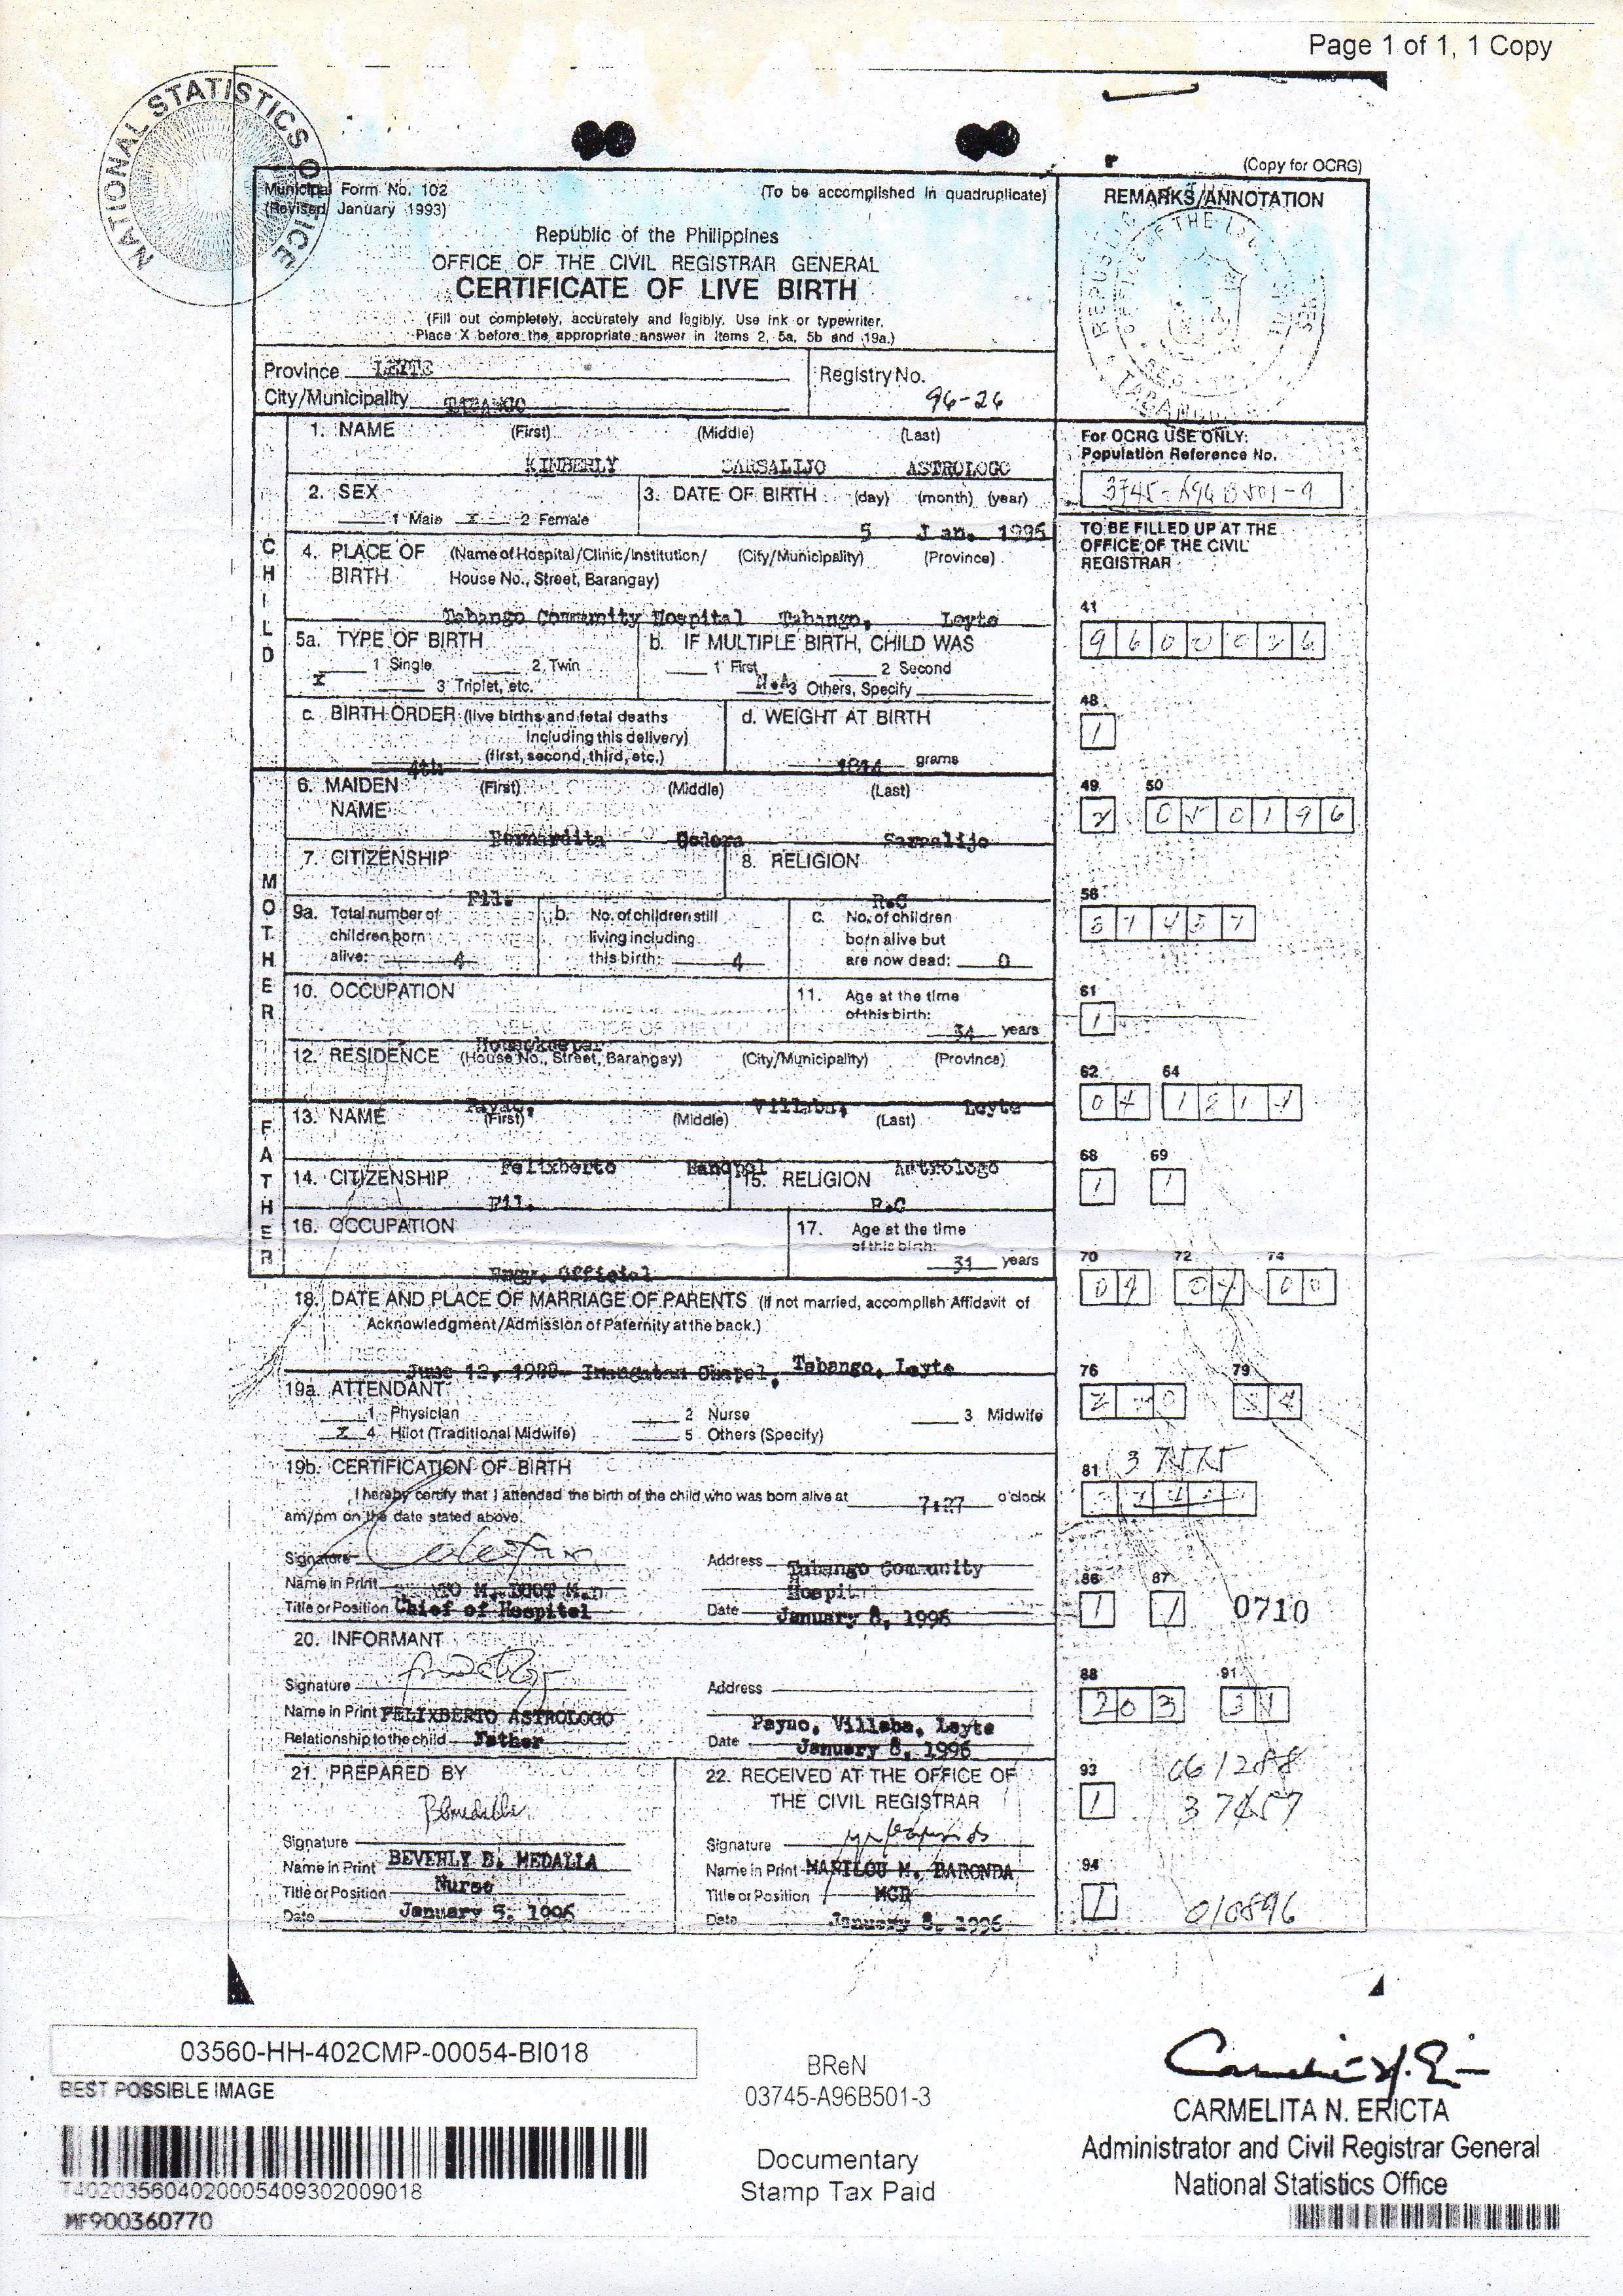 Page 1 of 1, 1 Copy
NATIONAL STATISTICS OFFICE
(Copy for OCRG)
Municipal Form No. 102
(Revised January 1993)
(To be accomplished in quadruplicate)
REMARKS/ANNOTATION
Republic of the Philippines
OFFICE OF THE CIVIL REGISTRAR GENERAL
CERTIFICATE OF LIVE BIRTH
(Fill out completely, accurately and legibly. Use ink or typewriter.
Place X before the appropriate answer in items 2, 5a, 5b and 19a.)
Province LEYTE
Registry No. 96-26
City/Municipality TABANGO
CHILD
1. NAME (First) (Middle) (Last)
KIMBERLY SARSALIJO ASTROLOGO
For OCRG USE ONLY:
Population Reference No.
2. SEX
1 Male X 2 Female
3. DATE OF BIRTH (day) (month) (year)
5 Jan. 1996
TO BE FILLED UP AT THE
OFFICE OF THE CIVIL
REGISTRAR
4. PLACE OF BIRTH (Name of Hospital/Clinic/Institution/ House No., Street, Barangay) (City/Municipality) (Province)
Tabango Community Hospital Tabango, Leyte
41
9600026
5a. TYPE OF BIRTH
1 Single 2 Twin
X 3 Triplet, etc.
b. IF MULTIPLE BIRTH, CHILD WAS
1 First 2 Second
N.A 3 Others, Specify
48
1
c. BIRTH ORDER (live births and fetal deaths
including this delivery)
(first, second, third, etc.)
4th
d. WEIGHT AT BIRTH
grams
MOTHER
6. MAIDEN NAME (First) (Middle) (Last)
Bernardita Sarsalijo
49 50
2 050196
7. CITIZENSHIP
Fil.
8. RELIGION
R.C
56
9a. Total number of
children born
alive: 4
b. No. of children still
living including
this birth: 4
c. No. of children
born alive but
are now dead: 0
10. OCCUPATION
Housekeeper
11. Age at the time
of this birth:
34 years
61
1
12. RESIDENCE (House No., Street, Barangay) (City/Municipality) (Province)
Payao, Villaba, Leyte
62 64
04
FATHER
13. NAME (First) (Middle) (Last)
Felixberto Astrologo
68 69
1 1
14. CITIZENSHIP
Fil.
15. RELIGION
R.C
16. OCCUPATION
Brgy. Official
17. Age at the time
of this birth:
31 years
70 72 74
04 04 00
18. DATE AND PLACE OF MARRIAGE OF PARENTS (If not married, accomplish Affidavit of
Acknowledgment/Admission of Paternity at the back.)
June 12, 1988- Chapel, Tabango, Leyte
76 79
34
19a. ATTENDANT
1 Physician 2 Nurse 3 Midwife
X 4 Hilot (Traditional Midwife) 5 Others (Specify)
19b. CERTIFICATION OF BIRTH
81 37575
I hereby certify that I attended the birth of the child who was born alive at 7:27 o'clock
am/pm on the date stated above.
Signature
Address Tabango Comunity
Hospital
Name in Print
Title or Position Chief of Hospital
Date January 8, 1996
86 87
1 1 0710
20. INFORMANT
Signature
Address
Name in Print FELIXBERTO ASTROLOGO
Payao, Villaba, Leyte
Relationship to the child Father
Date January 8, 1996
88 91
203 31
21. PREPARED BY
22. RECEIVED AT THE OFFICE OF
THE CIVIL REGISTRAR
93
1
061288
37457
Signature
Name in Print BEVERLY D. MEDALLA
Title or Position Nurse
Date January 5, 1996
Signature
Name in Print MARILOU M. BARONDA
Title or Position MCR
Date January 8, 1996
94
1
010896
03560-HH-402CMP-00054-BI018
BEST POSSIBLE IMAGE
T402035604020005409302009018
MF900360770
BReN
03745-A96B501-3
Documentary
Stamp Tax Paid
CARMELITA N. ERICTA
Administrator and Civil Registrar General
National Statistics Office